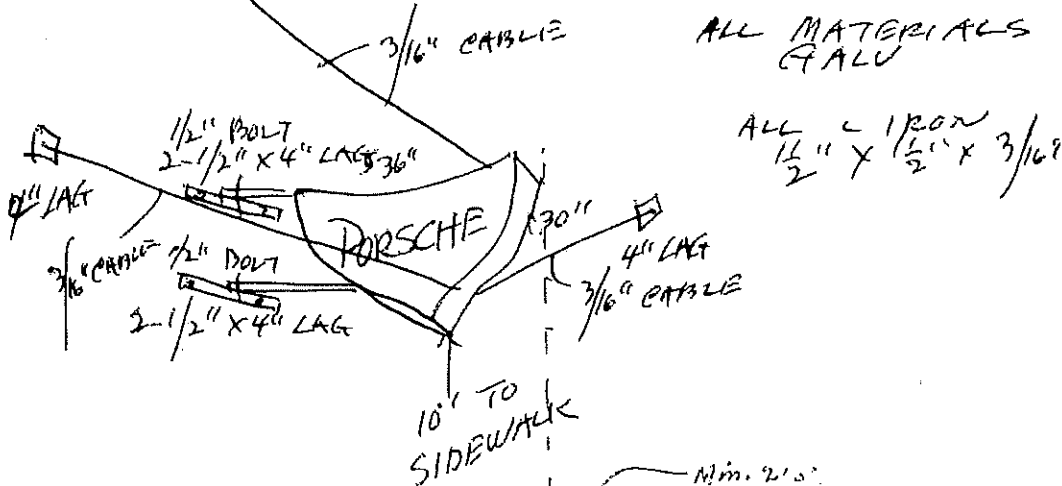 3/16" CABLE
ALL MATERIALS
GALV
ALL L IRON
1 1/2" X 1 1/2" X 3/16"
1/2" BOLT
2-1/2" X 4" LAGS 36"
4" LAG
PORSCHE
30"
4" LAG
3/16" CABLE
3/16" CABLE
1/2" BOLT
2-1/2" X 4" LAG
10' TO
SIDEWALK
Min. 2'0"